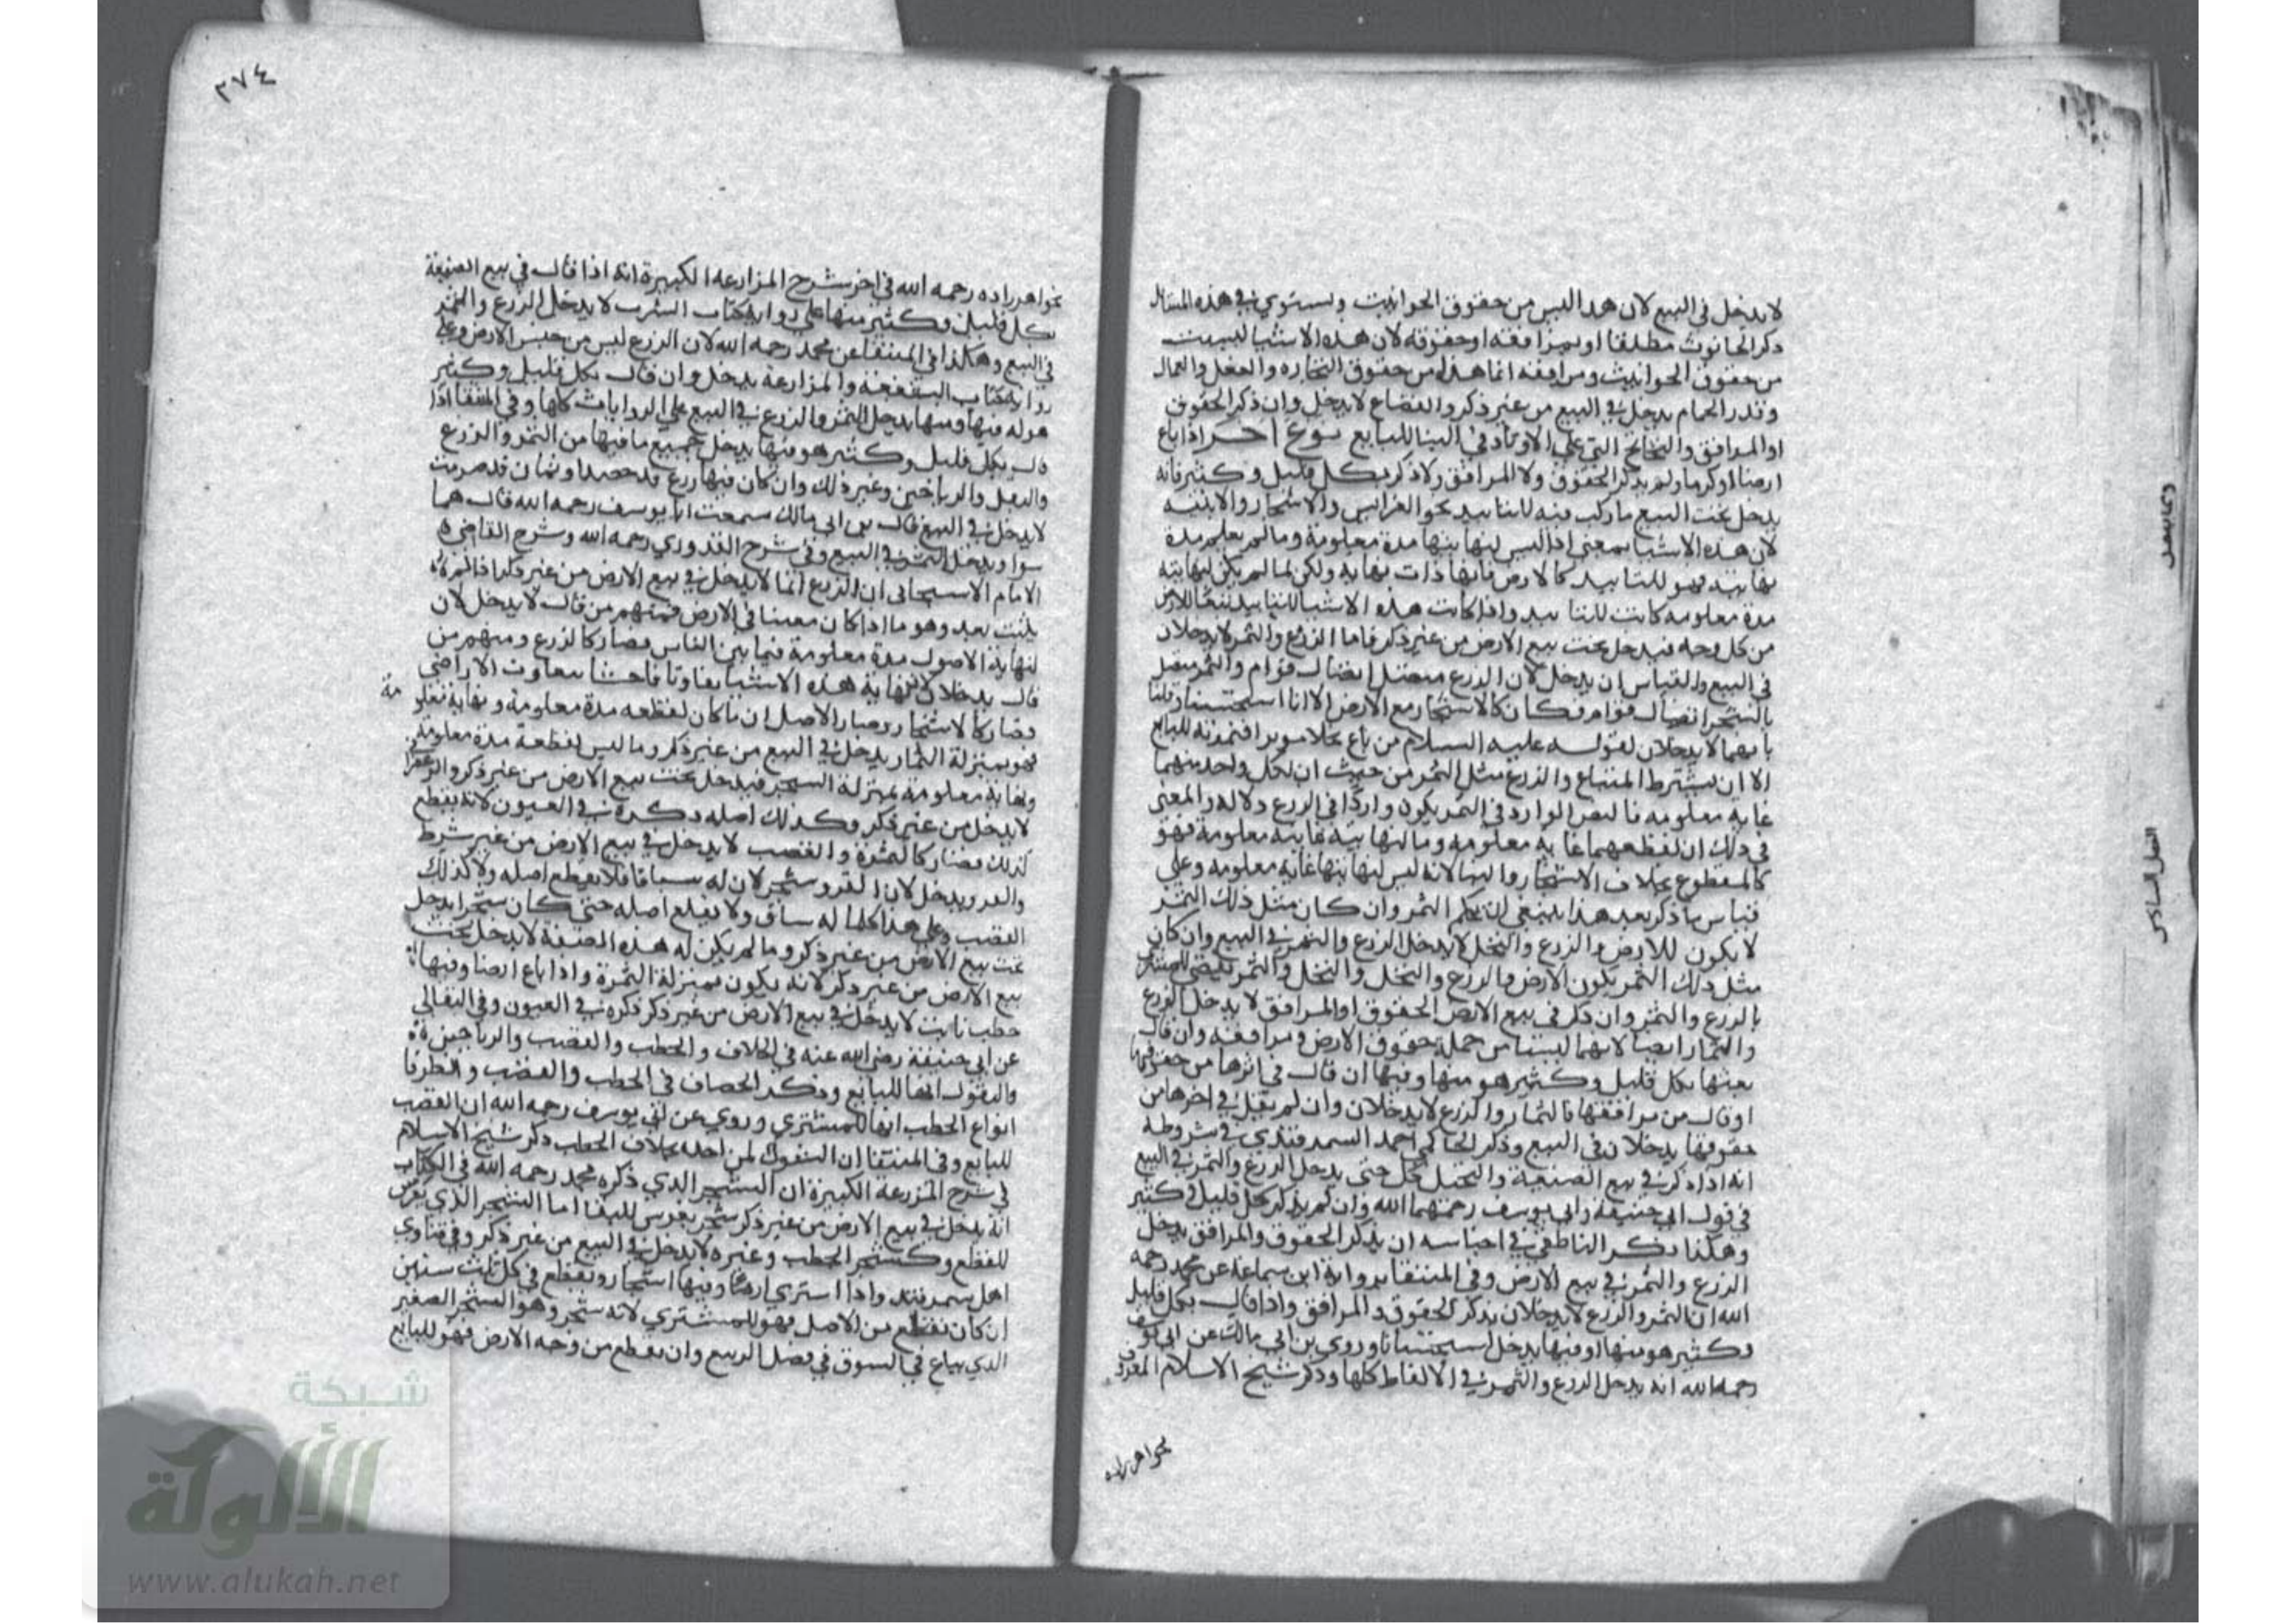 لا يدخل في البيع لان هذا ليس من حقوق الحوانيت ويستوي في هذه المسائل
ذكر الحانوت مطلقا او بمرافقه او حقوقه لان هذه الاشيا ليست
من حقوق الحوانيت ومرافقه انما هذا من حقوق التجاره والعمل والعمال
وقدر الحمام يدخل في البيع من غير ذكر والقصاع لا يدخل وان ذكر الحقوق
او المرافق والتي على الاوتاد في البنا للبايع نوع اخر اذا باع
ارضا او كرما ولم يذكر الحقوق ولا المرافق ولا ذكر بكل قليل وكثير فانه
يدخل تحت البيع ما ركب فيه للتابيد نحو الغرايس والاشجار والابنيه
لان هذه الاشيا بمعنى اذ ليس لنهايتها مدة معلومة وما لم يعلم مدة
نهايته فهو للتابيد كالارض فانها ذات نهايه ولكن لما لم يكن لنهايته
مدة معلومه كانت للتابيد واذا كانت هذه الاشيا للتابيد تبعا للارض
من كل وجه فيدخل تحت بيع الارض من غير ذكر فاما الزرع والثمر لا يدخلان
في البيع والقياس ان يدخل لان الزرع متصل اتصال قوام والثمر متصل
بالشجر اتصال قوام فكان كالاشجار مع الارض الا انا استحسنا وقلنا
بانهما لا يدخلان لقوله عليه السلام من باع نخلا موبرا فثمرته للبايع
الا ان يشترط المبتاع والزرع مثل الثمر من حيث ان لكل واحد منهما
غايه معلومه فالنص الوارد في الثمر يكون واردا في الزرع دلاله والمعنى
في ذلك ان لقطعهما غايه معلومه وما لنهايته غايه معلومة فهو
كالمقطوع بخلاف الاشجار والبنا لانه ليس لنهايتها غايه معلومه وعلى
قياس ما ذكر بعد هذا ينبغي ان يحكم الثمر وان كان مثل ذلك الثمر
لا يكون للارض والزرع والنخل لا يدخل الزرع والثمر في البيع وان كان
مثل ذلك الثمر يكون الارض والزرع والنخل والنخل والثمر يقضي للمشتري
بالزرع والثمر وان ذكر في بيع الارض الحقوق او المرافق لا يدخل الزرع
والثمار ايضا لانهما ليستا من جملة حقوق الارض ومرافقه وان قال
بعتها بكل قليل وكثير هو منها وفيها ان قال في اثرها من حقوقها
او قال من مرافقها فالثمار والزرع لا يدخلان وان لم يقل في اخرها من
حقوقها يدخلان في البيع وذكر الحاكم احمد السمرقندي في شروطه
انه اذا ذكر في بيع الضيعة والنخيل كل حتى يدخل الزرع والثمر في البيع
في قول ابي حنيفة وابي يوسف رحمهما الله وان لم يذكر كل قليل وكثير
وهكذا ذكر الناطفي في اجناسه ان بذكر الحقوق والمرافق يدخل
الزرع والثمر في بيع الارض وفي المنتقا برواية ابن سماعة عن محمد رحمه
الله ان الثمر والزرع لا يدخلان بذكر الحقوق والمرافق واذا قال بكل قليل
وكثير هو منها او فيها يدخل استحسانا وروي بن ابي مالك عن ابي يوسف
رحمه الله انه يدخل الزرع والثمر في الالفاظ كلها وذكر شيخ الاسلام المعروف
بخواهرزاده
٣٧٤
بخواهرزاده رحمه الله في اخر شرح المزارعه الكبيرة انه اذا قال في بيع الضيعة
بكل قليل وكثير منها على رواية كتاب الشرب لا يدخل الزرع والثمر
في البيع وهكذا في المنتقا عن محمد رحمه الله لان الزرع ليس من جنس الارض وعلى
رواية كتاب الشفعة والمزارعة يدخل وان قال بكل قليل وكثير
هو له فيها ومنها يدخل الثمر والزرع في البيع على الروايات كلها وفي المنتقا اذا
قال بكل قليل وكثير هو فيها يدخل جميع ما فيها من الثمر والزرع
والبقل والرياحين وغير ذلك وان كان فيها زرع قد حصد او ثمار قد صرمت
لا يدخل في البيع قال بن ابي مالك سمعت ابا يوسف رحمه الله قال هما
سوا ويدخل الثمر في البيع وفي شرح القدوري رحمه الله وشرح القاضي
الامام الاسبيجابي ان الزرع انما لا يدخل في بيع الارض من غير ذكر اذا لم
ينبت بعد وهو ما اذا كان معينا في الارض فمنهم من قال لا يدخل لان
لنهاية الاصول مدة معلومة فيما بين الناس فصار كالزرع ومنهم من
قال يدخلان لان نهاية هذه الاشيا تفاوتا فاحشا بتفاوت الاراضي
فصار كالاشجار وصار الاصل ان ما كان لقطعه مدة معلومة ونهاية معلومة
فهو بمنزلة الثمار يدخل في البيع من غير ذكر وما ليس لقطعه مدة معلومة
ونهاية معلومة بمنزلة الشجر فيدخل تحت بيع الارض من غير ذكر والزعفران
لا يدخل من غير ذكر وكذلك اصله ذكره في العيون لانه يقطع
كذلك فصار كالثمرة والقصب لا يدخل في بيع الارض من غير شرط
ويدخل لان شجر لان له ساقا فلا يقطع اصله ولا كذلك
القصب وعلى هذا كلما له ساق ولا يقلع اصله حتى كان شجرا يدخل
تحت بيع الارض من غير ذكر وما لم يكن له هذه الصفة لا يدخل تحت
بيع الارض من غير ذكر لانه يكون بمنزلة الثمرة واذا باع ارضا وفيها
حطب نابت لا يدخل في بيع الارض من غير ذكر ذكره في العيون وفي البقالي
عن ابي حنيفة رضي الله عنه في الخلاف والحطب والقصب والرياحين
والبقول انها للبايع وذكر الخصاف في الحطب والقصب والطرفا
انواع الحطب انها للمشتري وروي عن ابي يوسف رحمه الله ان القصب
للبايع وفي المنتقا ان لمن اخذه بخلاف الحطب ذكر شيخ الاسلام
في شرح المزارعة الكبيرة ان الشجر الذي ذكره محمد رحمه الله في الكتاب
انه يدخل في بيع الارض من غير ذكر شجر يغرس للبقا اما الشجر الذي يغرس
للقطع وكشجر الحطب وغيره لا يدخل في البيع من غير ذكر وفي فتاوي
اهل سمرقند واذا اشترى ارضا وفيها اشجار وتقطع في كل ثلث سنين
ان كان تقطع من الاصل فهو للمشتري لانه شجر وهو الشجر الصغير
الذي يباع في السوق في فصل الربيع وان تقطع من وجه الارض فهو للبايع
شبكة
الألوكة
www.alukah.net